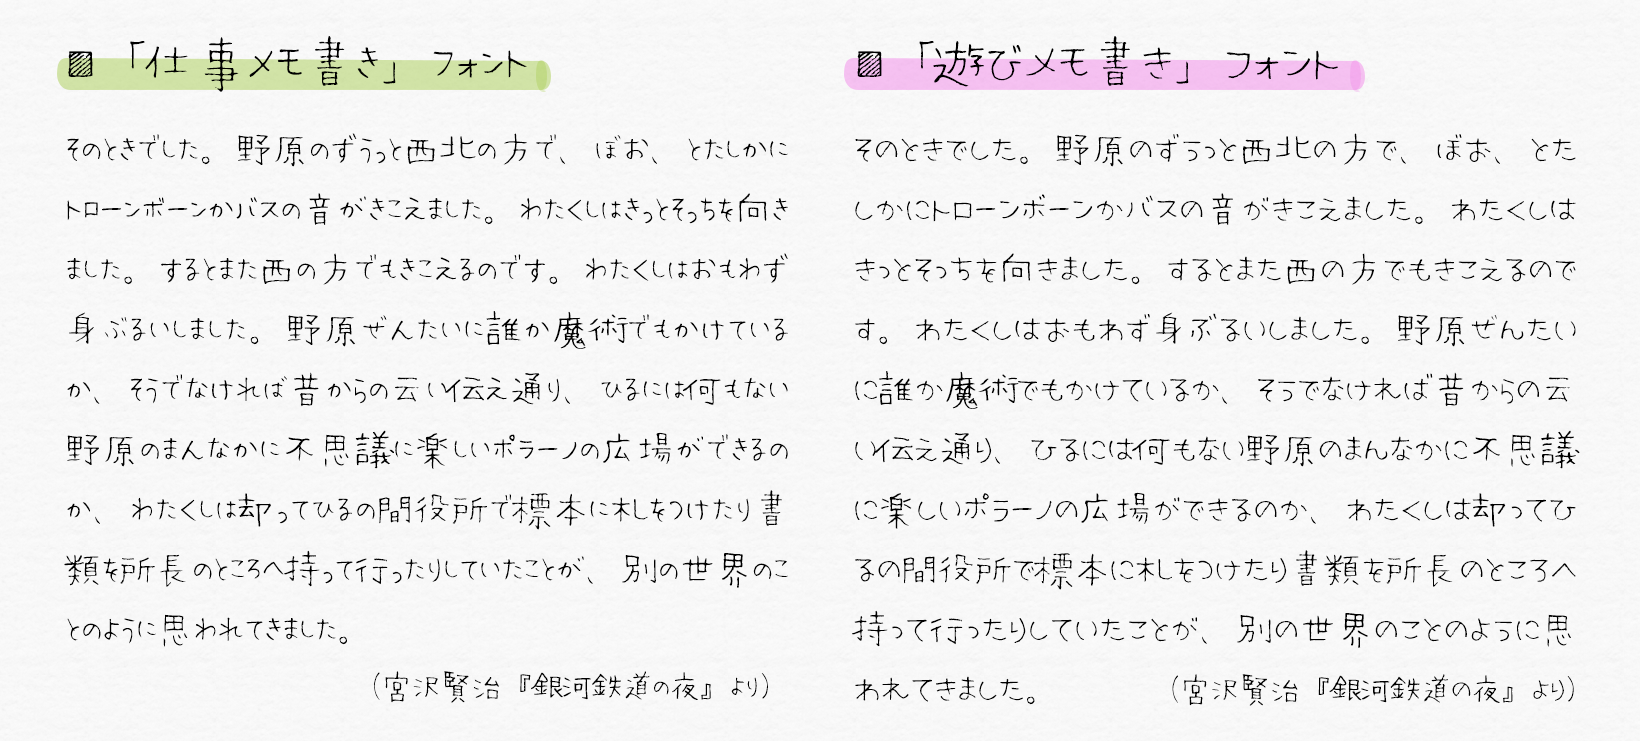 ▨「仕事メモ書き」フォント
そのときでした。野原のずうっと西北の方で、ぼお、とたしかに
トローンボーンかバスの音がきこえました。わたくしはきっとそっちを向き
ました。するとまた西の方でもきこえるのです。わたくしはおもわず
身ぶるいしました。野原ぜんたいに誰か魔術でもかけている
か、そうでなければ昔からの云い伝え通り、ひるには何もない
野原のまんなかに不思議に楽しいポラーノの広場ができるの
か、わたくしは却ってひるの間役所で標本に札をつけたり書
類を所長のところへ持って行ったりしていたことが、別の世界のこ
とのように思われてきました。
（宮沢賢治『銀河鉄道の夜』より）
▨「遊びメモ書き」フォント
そのときでした。野原のずうっと西北の方で、ぼお、とた
しかにトローンボーンかバスの音がきこえました。わたくしは
きっとそっちを向きました。するとまた西の方でもきこえるので
す。わたくしはおもわず身ぶるいしました。野原ぜんたい
に誰か魔術でもかけているか、そうでなければ昔からの云
い伝え通り、ひるには何もない野原のまんなかに不思議
に楽しいポラーノの広場ができるのか、わたくしは却ってひ
るの間役所で標本に札をつけたり書類を所長のところへ
持って行ったりしていたことが、別の世界のことのように思
われてきました。（宮沢賢治『銀河鉄道の夜』より）